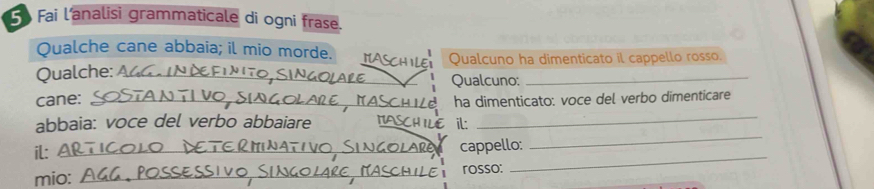 5 Fai l'analisi grammaticale di ogni frase.
Qualche cane abbaia; il mio morde.
Qualche: AGG. INDEFINITO, SINGOLARE MASCHILE
cane: SOSTANTIVO, SINGOLARE, MASCHILE
abbaia: voce del verbo abbaiare
il: ARTICOLO DETERMINATIVO, SINGOLARE, MASCHILE
mio: AGG. POSSESSIVO, SINGOLARE, MASCHILE
Qualcuno ha dimenticato il cappello rosso.
Qualcuno:
ha dimenticato: voce del verbo dimenticare
il:
cappello:
rosso: